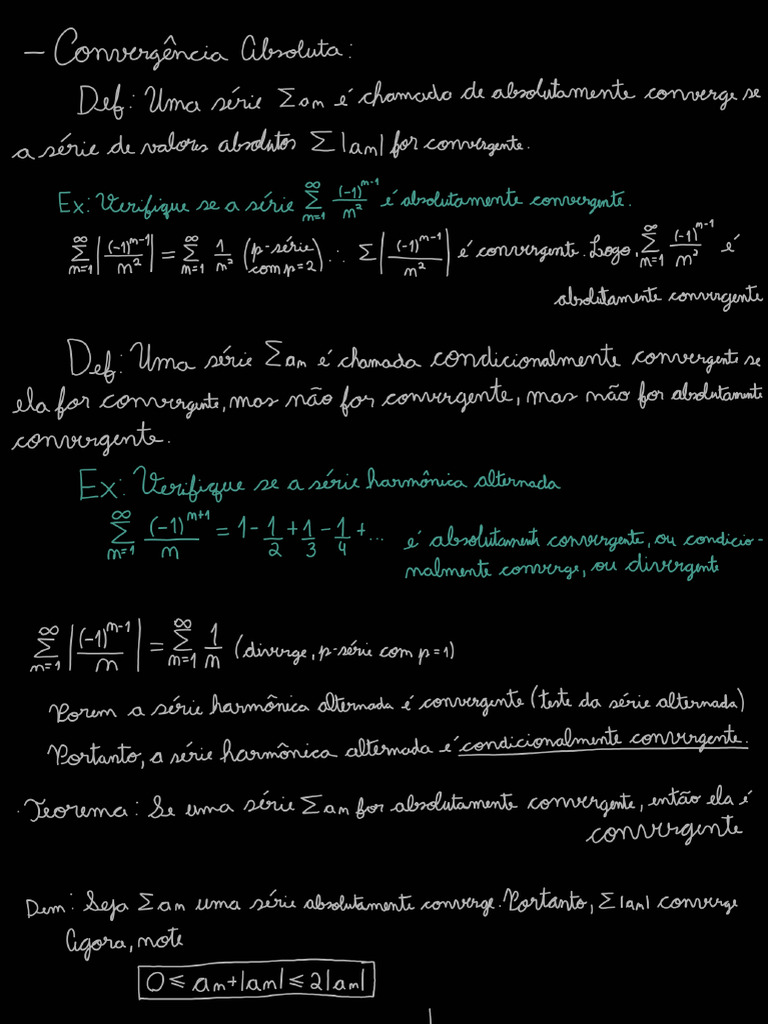 — Convergência Absoluta:
Def: Uma série Σam é chamada de absolutamente converge se
a série de valores absolutos Σ|am| for convergente.
Ex: Verifique se a série ∞Σm=1 (-1)^(m-1)/m² é absolutamente convergente.
∞Σm=1 |(-1)^(m-1)/m²| = ∞Σm=1 1/m² (p-série com p=2) ∴ Σ|(-1)^(m-1)/m²| é convergente. Logo, ∞Σm=1 (-1)^(m-1)/m² é
absolutamente convergente
Def: Uma série Σam é chamada condicionalmente convergente se
ela for convergente, mas não for convergente, mas não for absolutamente
convergente.
Ex: Verifique se a série harmônica alternada
∞Σm=1 (-1)^(m+1)/m = 1 - 1/2 + 1/3 - 1/4 + ... é absolutament convergente, ou condicio-
nalmente converge, ou divergente
∞Σm=1 |(-1)^(m-1)/m| = ∞Σm=1 1/m (diverge, p-série com p=1)
Porem a série harmônica alternada é convergente (teste da série alternada)
Portanto, a série harmônica alternada é condicionalmente convergente.
· Teorema: Se uma série Σam for absolutamente convergente, então ela é
convergente
Dem: Seja Σam uma série absolutamente converge. Portanto, Σ|am| converge
Agora, note
0 ⩽ am+|am| ⩽ 2|am|